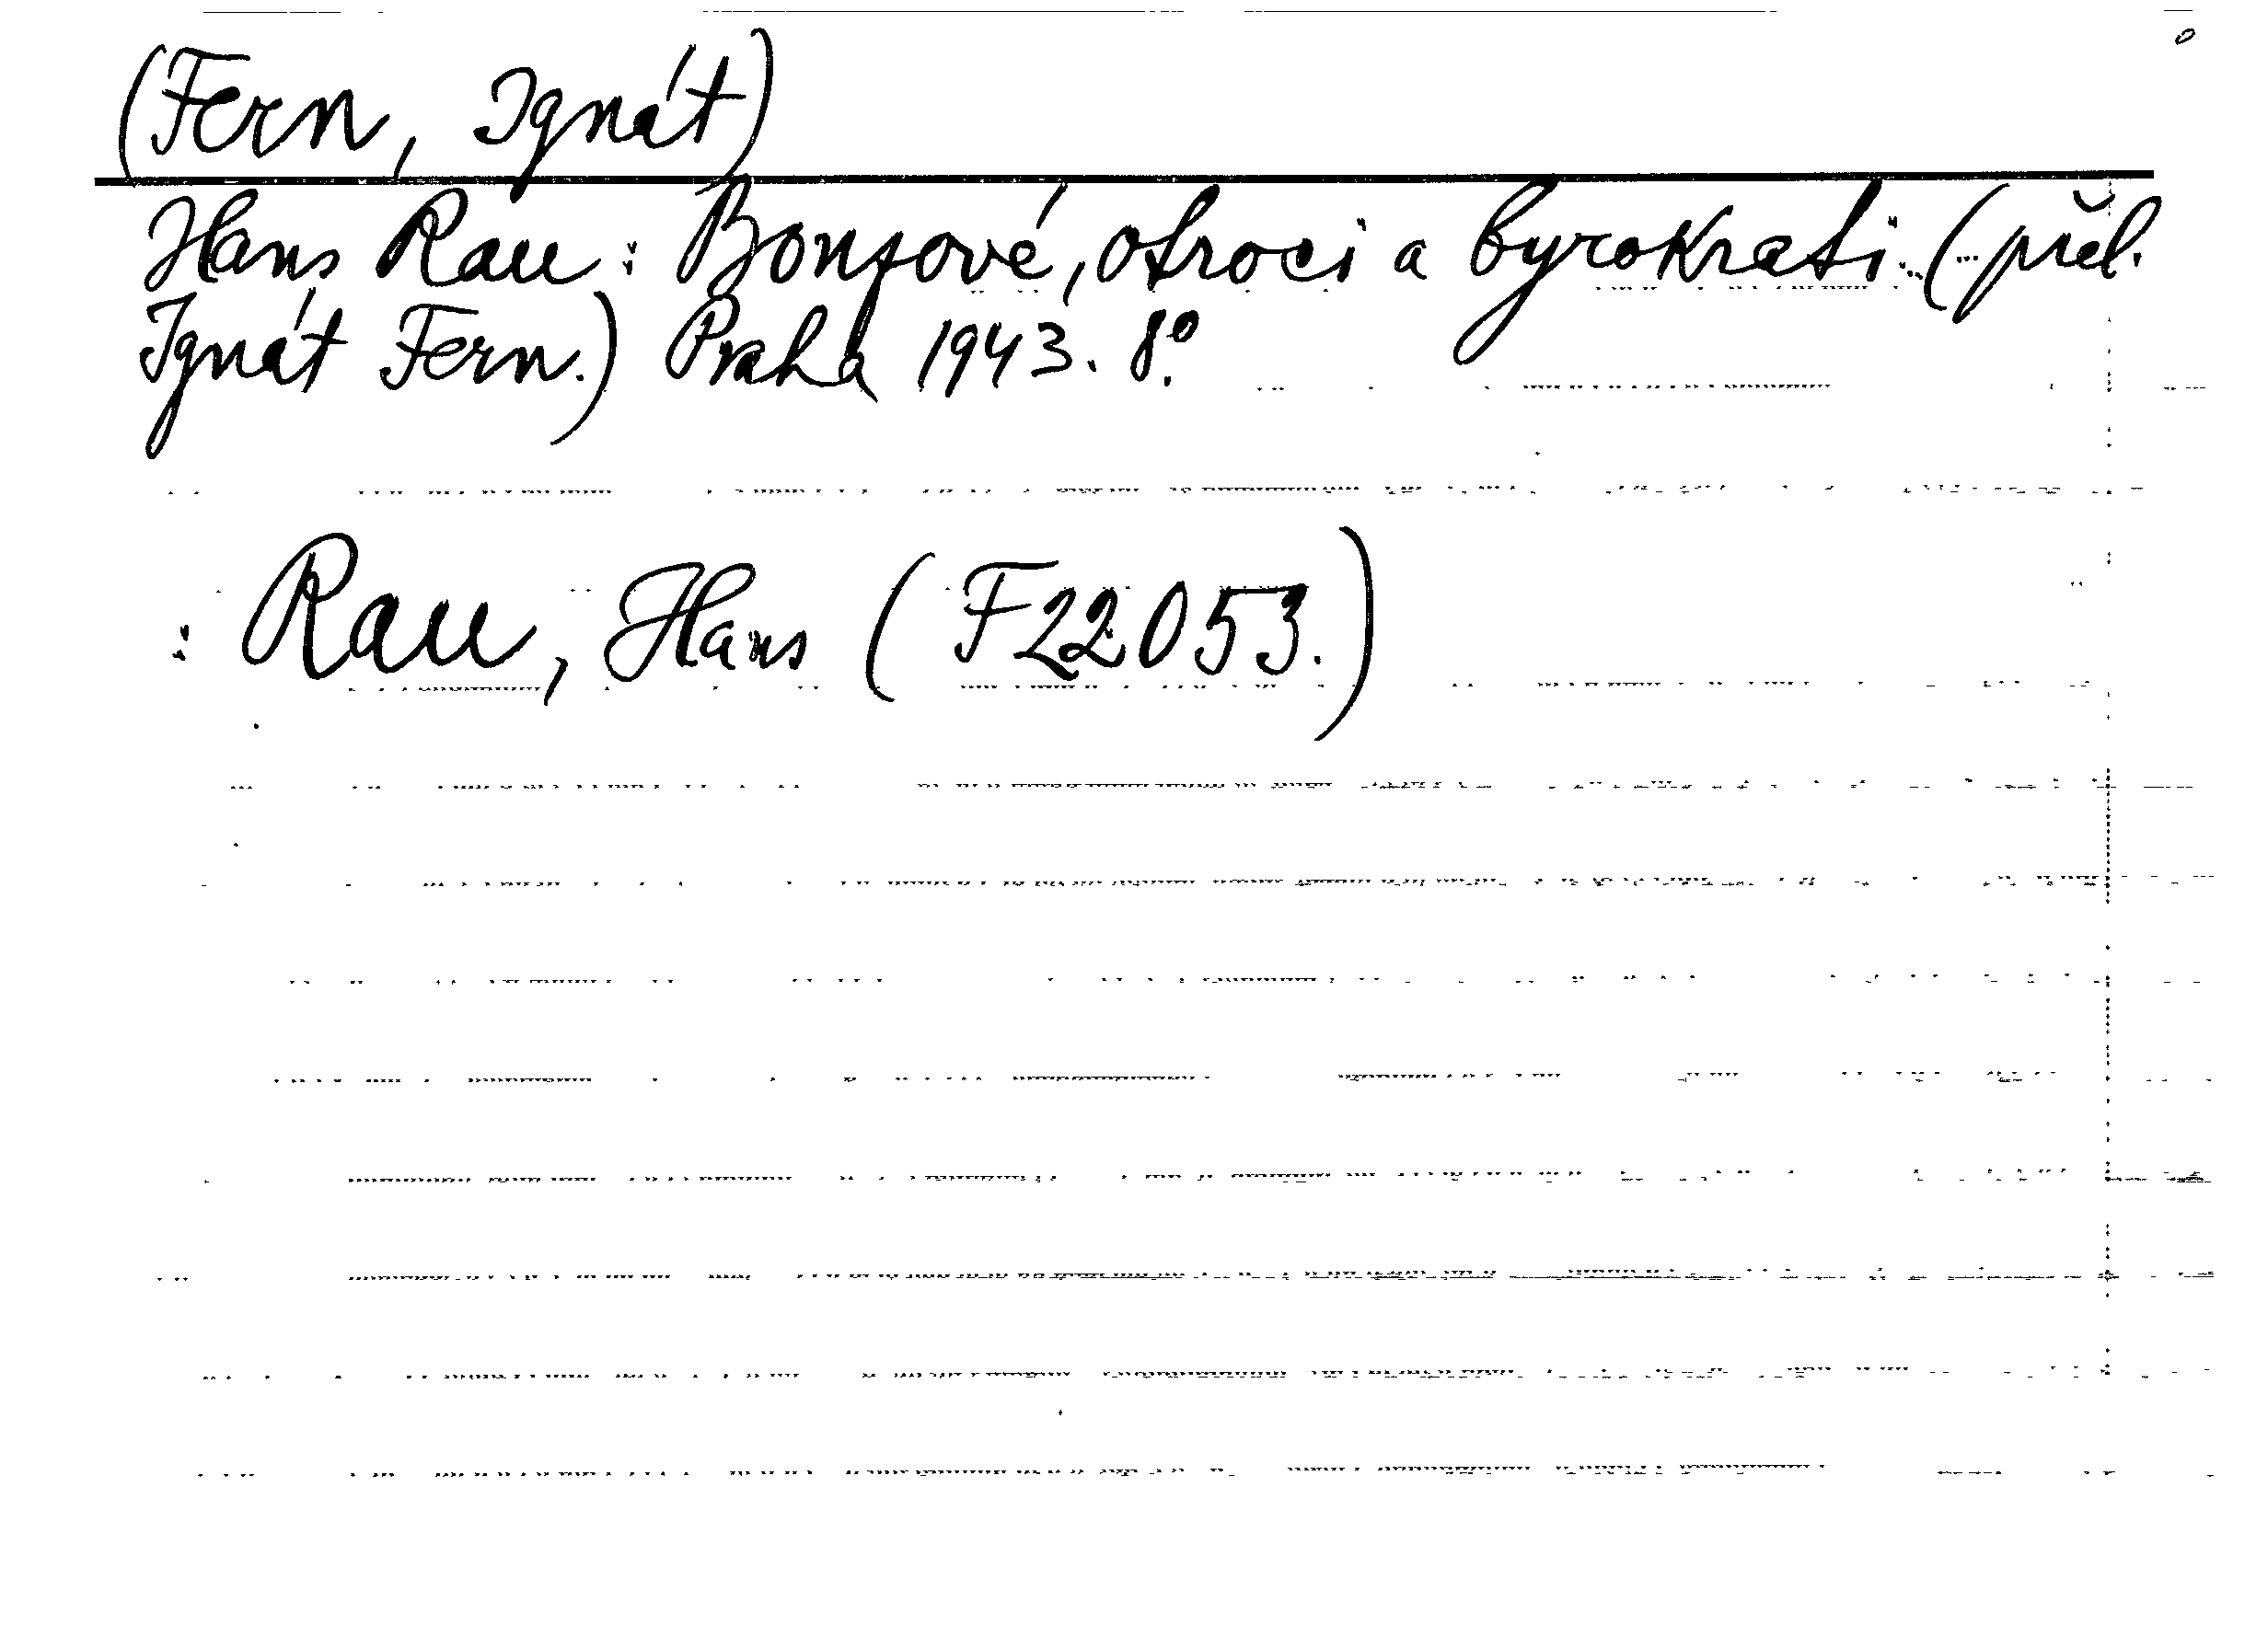 (Fern, Ignát)
Hans Rau: Bonzové, otroci a byrokrati...(...přel.
Ignát Fern.) Praha 1943. 8°.
: Rau, Hans (F 22053.)